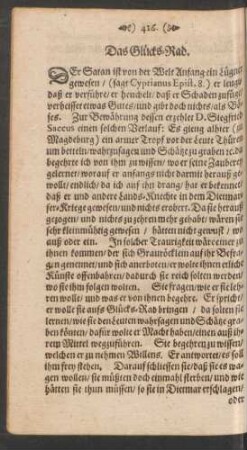 416.
Das Glücks-Rad.
DEr Satan ist von der Welt Anfang ein Lügner
gewesen / (sagt Cyprianus Epist. 8.) er leugt /
daß er verführe / er heuchelt / daß er Schaden zufüge /
verheisset etwas Gutes / und gibt doch nichts / als Bö-
ses. Zur Bewährung dessen erzehlet D. Siegfried
Saccus einen solchen Verlauf: Es gieng alhier (zu
Magdeburg) ein armer Tropf vor der Leute Thüren
um betteln / wahrzusagen und Schätz zu graben /
begehrte ich von ihm zu wissen / wo er seine Zauberey
gelernet / worauf er anfangs nicht darmit heraus ge-
wolt / endlich / da ich auf ihn drang / har er bekennet /
daß er und andere Lands-Knechte in dem Dittmar-
ser-Kriege gewesen / und nichts erobert. Da sie heraus
gezogen / und nichts zu zehren mehr gehabt / wären sie
sehr kleinmühtig gewesen / hätten nicht gewust / wo
auß oder ein. In solcher Traurigkeit wäre einer zu
ihnen kommen / der sich Grauröcklein auf ihr Befra-
gen genennet / und sich anerboten / er wolte ihnen eine
Kunst offenbahren / dadurch sie reich solten werden /
wo sie ihm folgen wolten. Sie fragen / wie er sie leh-
ren wolle / und was er von ihnen begehre. Er spricht /
er wolle sie aufs Glücks-Rad bringen / da solten sie
lernen / wie sie den Leuten wahrsagen und Schätz gra-
ben können / dafür wolte er Macht haben / einen auß ih-
rem Mittel wegzuführen. Sie begehren zu wissen /
welchen er zu nehmen Willens. Er antwortet / es soll
ihm frey stehen. Darauf schliessen sie / daß sie es wa-
gen wollen / sie müßten doch einmahl sterben / und wie
hätten sie thun müssen / so sie in Dietmar erschlagen /
oder